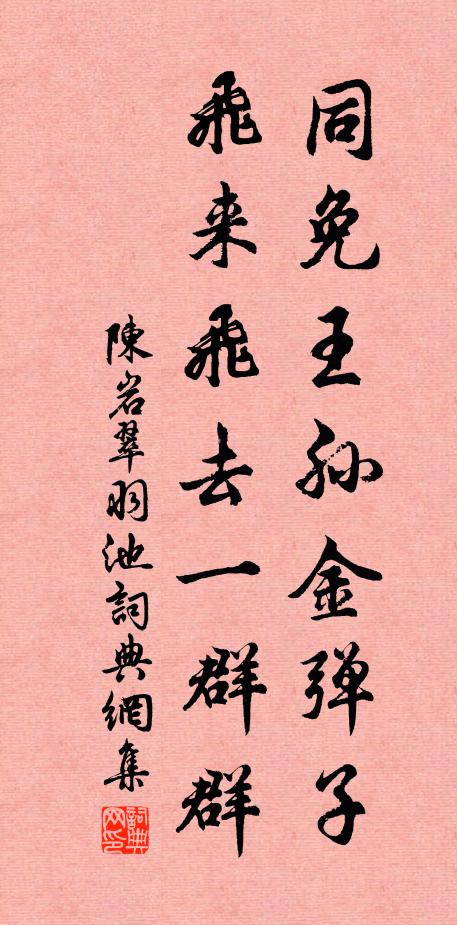 同免王孙金弹子
飛来飛去一群群
陳岩翠羽池詞典網集
詞典网印